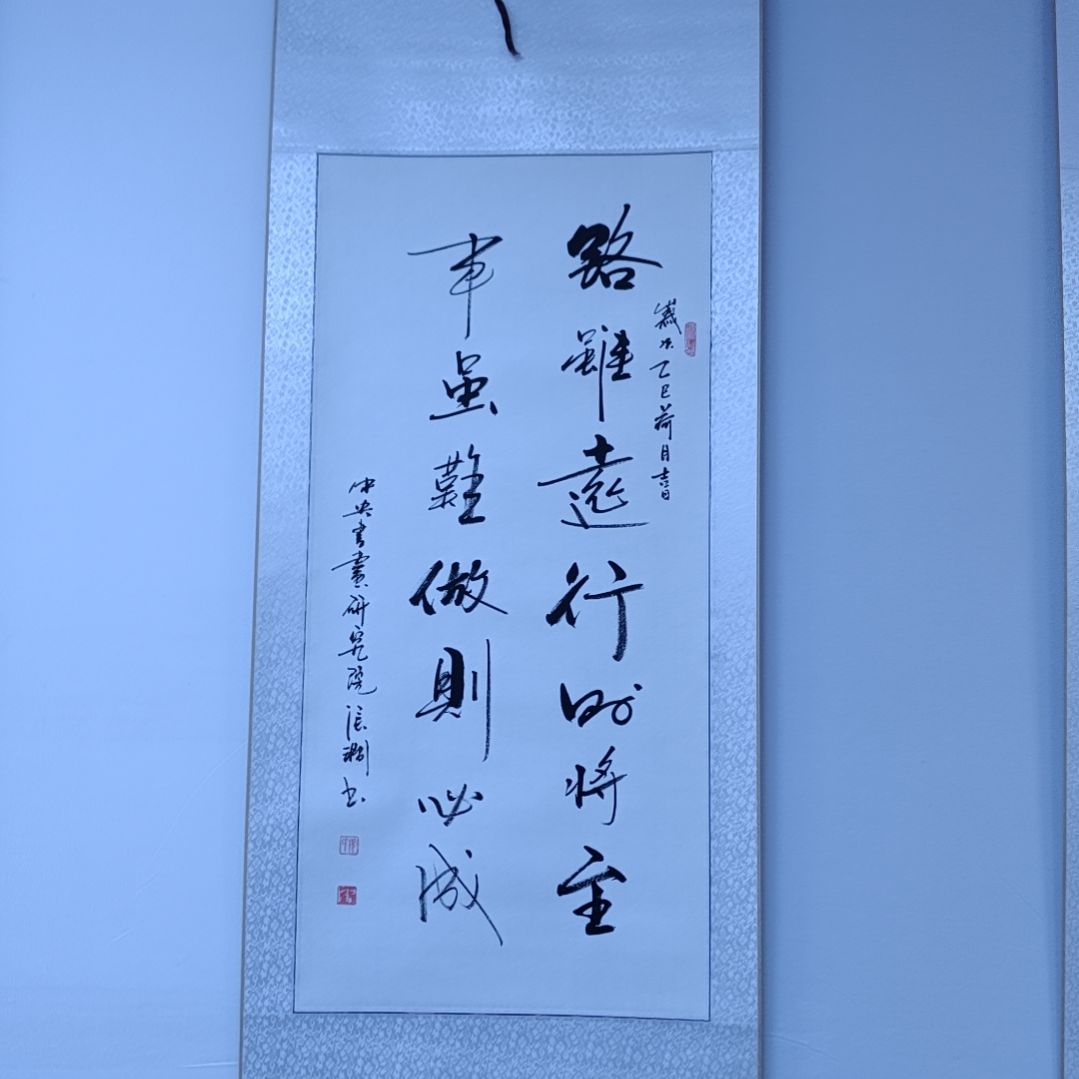 歲次乙巳荷月吉日
路雖遠行則將至
事虽難做則必成
中央書畫研究院張书